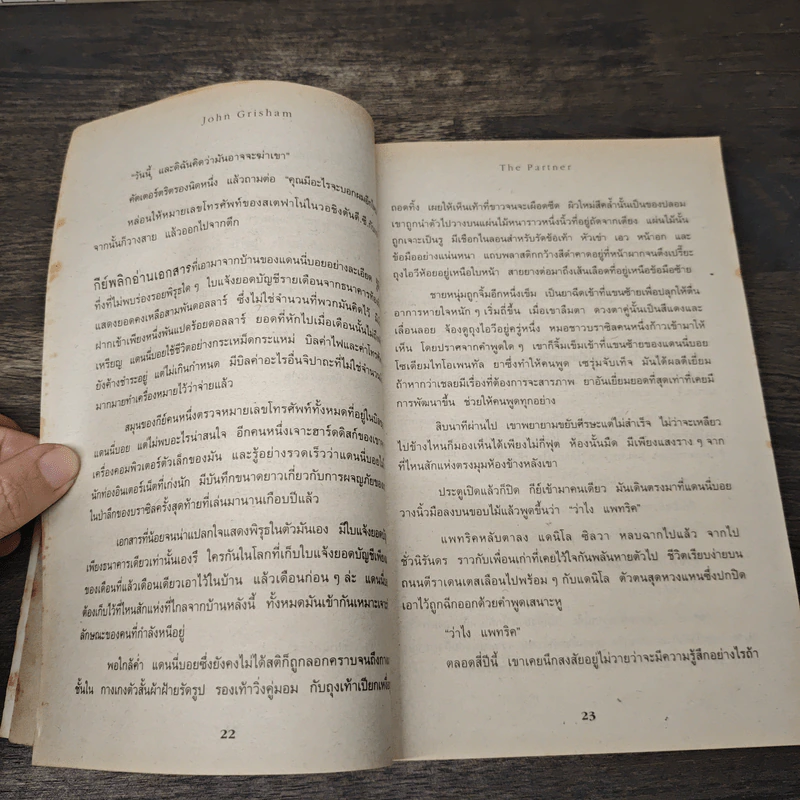 John Grisham
"วันนี้ และดิฉันคิดว่ามันอาจจะฆ่าเขา"
คัตเตอร์ตริตรองนิดหนึ่ง แล้วถามต่อ "คุณมีอะไรจะบอกผมอีก
หล่อนให้หมายเลขโทรศัพท์ของสเตฟาโนในวอชิงตันดี.ซี.
จากนั้นก็วางสาย แล้วออกไปจากตึก
กีย์พลิกอ่านเอกสารที่เอามาจากบ้านของแดนนี่บอยอย่างละเอียด
ทิ่งที่ไม่พบร่องรอยพิรุธใด ๆ ใบแจ้งยอดบัญชีรายเดือนจากธนาคารท้อง
แสดงยอดคงเหลือสามพันดอลลาร์ ซึ่งไม่ใช่จำนวนที่พวกมันคิดไว้
ฝากเข้าเพียงหนึ่งพันแปดร้อยดอลลาร์ ยอดที่หักไปเมื่อเดือนนั้นไม่ถึง
เหรียญ แดนนี่บอยใช้ชีวิตอย่างกระเหม็ดกระแหม่ บิลค่าไฟและค่าโทรศัพท์
ยังค้างชำระอยู่ แต่ไม่เกินกำหนด มีบิลค่าอะไรอื่นจิปาถะที่ไม่ใช่จำนวน
มากมายทำเครื่องหมายไว้ว่าจ่ายแล้ว
สมุนของกีย์คนหนึ่งตรวจหมายเลขโทรศัพท์ทั้งหมดที่อยู่ในบิล
แดนนี่บอย แต่ไม่พบอะไรน่าสนใจ อีกคนหนึ่งเจาะฮาร์ดดิสก์ของเขา
เครื่องคอมพิวเตอร์ตัวเล็กของมัน และรู้อย่างรวดเร็วว่าแดนนี่บอยไม่ใช่
นักท่องอินเตอร์เน็ตที่เก่งนัก มีบันทึกขนาดยาวเกี่ยวกับการผจญภัยของ
ในป่าลึกของบราซิลครั้งสุดท้ายที่เล่นมานานเกือบปีแล้ว
เอกสารที่น้อยจนน่าแปลกใจแสดงพิรุธในตัวมันเอง มีใบแจ้งยอดบัญชี
เพียงธนาคารเดียวเท่านั้นเองรึ ใครกันในโลกที่เก็บใบแจ้งยอดบัญชีเพียง
ของเดือนที่แล้วเดือนเดียวเอาไว้ในบ้าน แล้วเดือนก่อน ๆ ล่ะ แดนนี่บอย
ต้องเก็บไว้ที่ไหนสักแห่งที่ไกลจากบ้านหลังนี้ ทั้งหมดมันเข้ากันเหมาะเจาะ
ลักษณะของคนที่กำลังหนีอยู่
พอใกล้ค่ำ แดนนี่บอยซึ่งยังคงไม่ได้สติก็ถูกลอกคราบจนถึงกางเกง
ชั้นใน กางเกงตัวสั้นผ้าฝ้ายรัดรูป รองเท้าวิ่งคู่มอม กับถุงเท้าเปียกเหงื่อ
22
The Partner
ถอดทิ้ง เผยให้เห็นเท้าที่ขาวจนจะเผือดซีด ผิวใหม่สีคล้ำนั้นเป็นของปลอม
เขาถูกนำตัววางบนแผ่นไม้หนาราวหนึ่งนิ้วที่อยู่ถัดจากเตียง แผ่นไม้นั้น
ถูกเจาะเป็นรู มีเชือกไนลอนสำหรับรัดข้อเท้า หัวเข่า เอว หน้าอก และ
ข้อมืออย่างแน่นหนา แถบพลาสติกกว้างสีดำคาดอยู่ที่หน้าผากจนตึงเปรี๊ยะ
ถุงไอวีห้อยอยู่เหนือใบหน้า สายยางต่อมาถึงเส้นเลือดที่อยู่เหนือข้อมือซ้าย
ชายหนุ่มถูกจิ้มอีกหนึ่งเข็ม เป็นยาฉีดเข้าที่แขนซ้ายเพื่อปลุกให้ตื่น
อาการหายใจหนัก ๆ เริ่มถี่ขึ้น เมื่อเขาลืมตา ดวงตาคู่นั้นเป็นสีแดงและ
เลื่อนลอย จ้องดูถุงไอวีอยู่ครู่หนึ่ง หมอชาวบราซิลคนหนึ่งก้าวเข้ามาให้
เห็น โดยปราศจากคำพูดใด ๆ เขาก็จิ้มเข็มเข้าที่แขนซ้ายของแดนนี่บอย
โซเดียมไทโอเพนทัล ยาซึ่งทำให้คนพูด เซรุ่มจับเท็จ มันได้ผลดีเยี่ยม
ถ้าหากว่าเชลยมีเรื่องที่ต้องการจะสารภาพ ยาอันเยี่ยมยอดที่สุดเท่าที่เคยมี
การพัฒนาขึ้น ช่วยให้คนพูดทุกอย่าง
สิบนาทีผ่านไป เขาพยายามขยับศีรษะแต่ไม่สำเร็จ ไม่ว่าจะเหลียว
ไปข้างไหนก็มองเห็นได้เพียงไม่กี่ฟุต ห้องนั้นมืด มีเพียงแสงราง ๆ จาก
ที่ไหนสักแห่งตรงมุมห้องข้างหลังเขา
ประตูเปิดแล้วก็ปิด กีย์เข้ามาคนเดียว มันเดินตรงมาที่แดนนี่บอย
วางนิ้วมือลงบนขอบไม้แล้วพูดขึ้นว่า "ว่าไง แพทริค"
แพทริคหลับตาลง แดนิโล ซิลวา หลบฉากไปแล้ว จากไป
ชั่วนิรันดร ราวกับเพื่อนเก่าที่เคยไว้ใจกันพลันหายตัวไป ชีวิตเรียบง่ายบน
ถนนตีราเดนเตสเลือนไปพร้อม ๆ กับแดนิโล ตัวตนสุดหวงแหนซึ่งปกปิด
เอาไว้ถูกฉีกออกด้วยคำพูดเสนาะหู
"ว่าไง แพทริค"
ตลอดสี่ปีนี้ เขาเคยนึกสงสัยอยู่ไม่วายว่าจะมีความรู้สึกอย่างไรถ้า
23